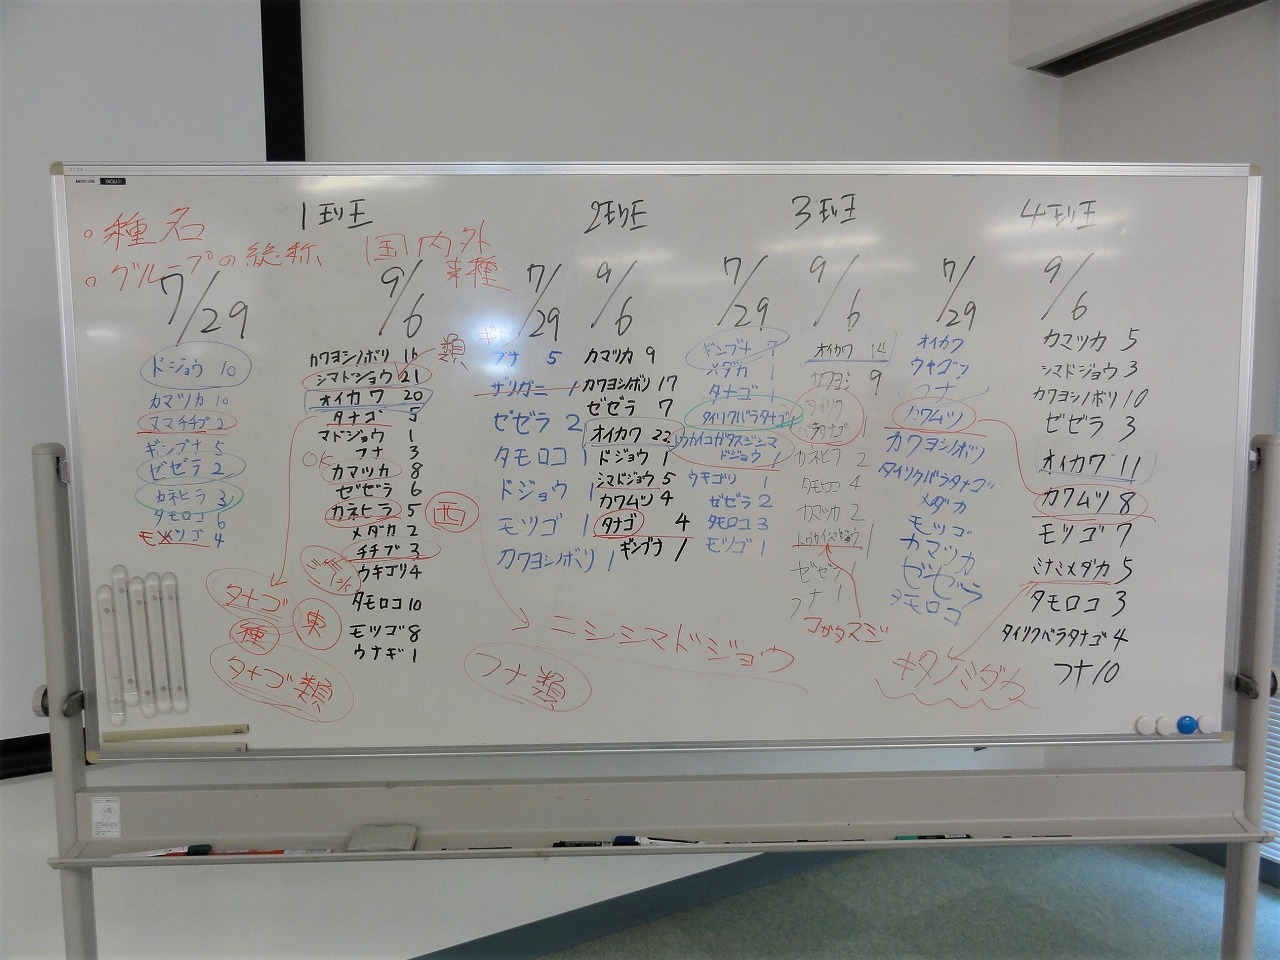 ・種名
・グループの総称
国内外
来種
1班
7/29
ドジョウ 10
カマツカ 10
ヌマチチブ 2
ギンブナ 5
ゼゼラ 2
カネヒラ 3
タモロコ 6
モツゴ 4
9/6
カワヨシノボリ 16
類
シマドジョウ 21
オイカワ 20
タナゴ 5
マドジョウ 1
フナ 3
OK
カマツカ 8
ゼゼラ 6
カネヒラ 5
西
メダカ 2
チチブ 3
ウキゴリ 4
タモロコ 10
モツゴ 8
ウナギ 1
タナゴ
種
東
タナゴ類
2班
7/29
フナ 5
ザリガニ 1
ゼゼラ 2
タモロコ 1
ドジョウ 1
モツゴ 1
カワヨシノボリ 1
9/6
カマツカ 9
カワヨシノボリ 17
ゼゼラ 7
オイカワ 22
ドジョウ 1
シマドジョウ 5
カワムツ 4
タナゴ 4
ギンブナ 1
ニシシマドジョウ
フナ類
3班
7/29
ギンブナ 7
メダカ 1
タナゴ 1
タイリクバラタナゴ 1
ドジョウ 1
ウキゴリ 1
ゼゼラ 2
タモロコ 3
モツゴ 1
9/6
オイカワ 14
カワヨシ 9
タイリク
バラタナゴ 1
カネヒラ 2
タモロコ 4
カマツカ 2
トウカイシマドジョウ 1
ゼゼラ 1
フナ 1
コガタスジ
4班
7/29
オイカワ
ウキゴリ
フナ
カワムツ
カワヨシノボリ
タイリクバラタナゴ
メダカ
モツゴ
カマツカ
ゼゼラ
タモロコ
9/6
カマツカ 5
シマドジョウ 3
カワヨシノボリ 10
ゼゼラ 3
オイカワ 11
カワムツ 8
モツゴ 7
ミナミメダカ 5
タモロコ 3
タイリクバラタナゴ 4
フナ 10